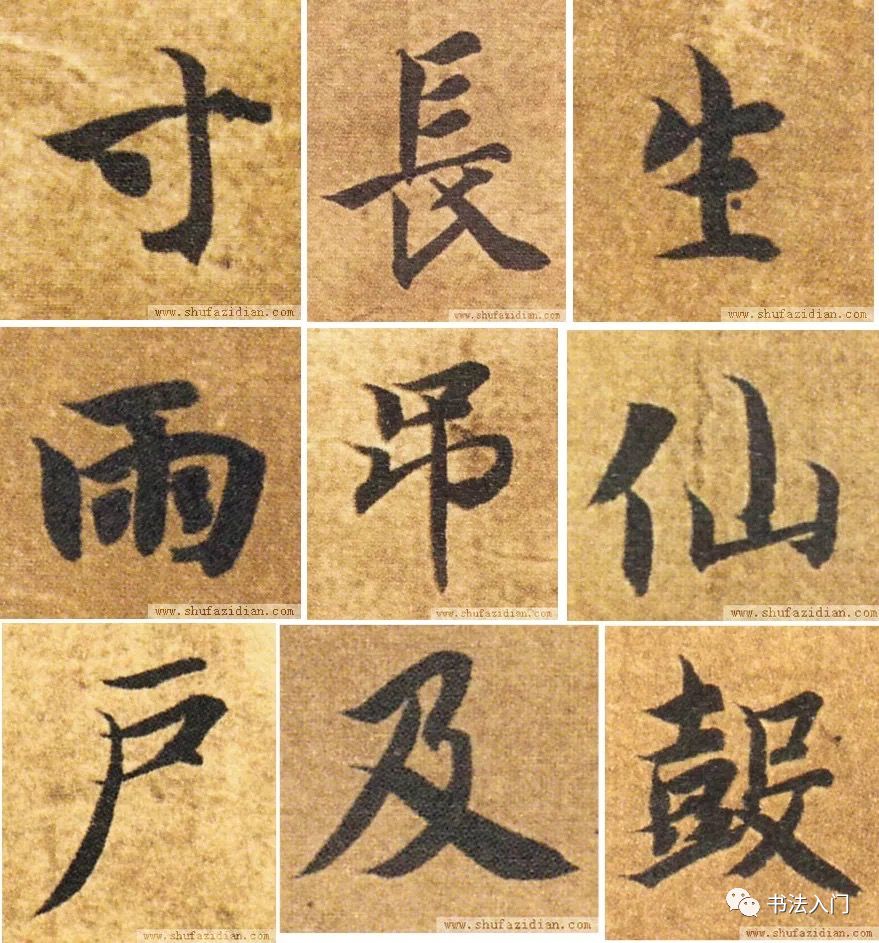 寸 長 生
www.shufazidian.com www.shufazidian.com www.shufazidian.com
雨 吊 仙
www.shufazidian.com www.shufazidian.com www.shufazidian.com
户 及 鼓
www.shufazidian.com www.shufazidian.com www.shufazidian.com
书法入门